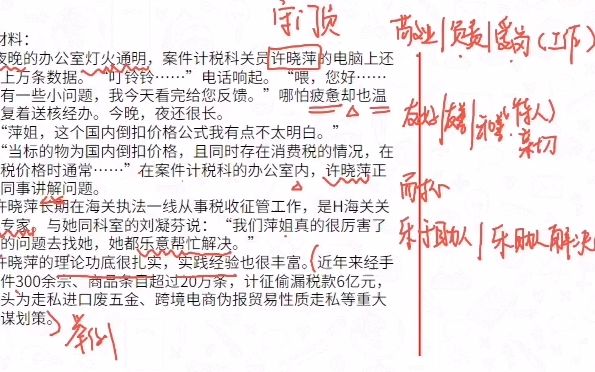 守门员
商业|负责|爱岗(工作)
材料：
夜晚的办公室灯火通明，案件计税科关员许晓萍的电脑上还
上万条数据。“叮铃铃……”电话响起。“喂，您好……
有一些小问题，我今天看完给您反馈。”哪怕疲惫却也温
复着送核经办。今晚，夜还很长。
友好|友善|和善(待人)
亲切
“萍姐，这个国内倒扣价格公式我有点不太明白。”
“当标的物为国内倒扣价格，且同时存在消费税的情况，在
税价格时通常……”在案件计税科的办公室内，许晓萍正
同事讲解问题。
耐心
许晓萍长期在海关执法一线从事税收征管工作，是H海关关
专家，与她同科室的刘凝芬说：“我们萍姐真的很厉害了
的问题去找她，她都乐意帮忙解决。”
乐于助人|乐助人解决
许晓萍的理论功底很扎实，实践经验也很丰富。（近年来经手
件300余宗、商品条目超过20万条，计征偷漏税款6亿元，
头为走私进口废五金、跨境电商伪报贸易性质走私等重大
谋划策。）
举例